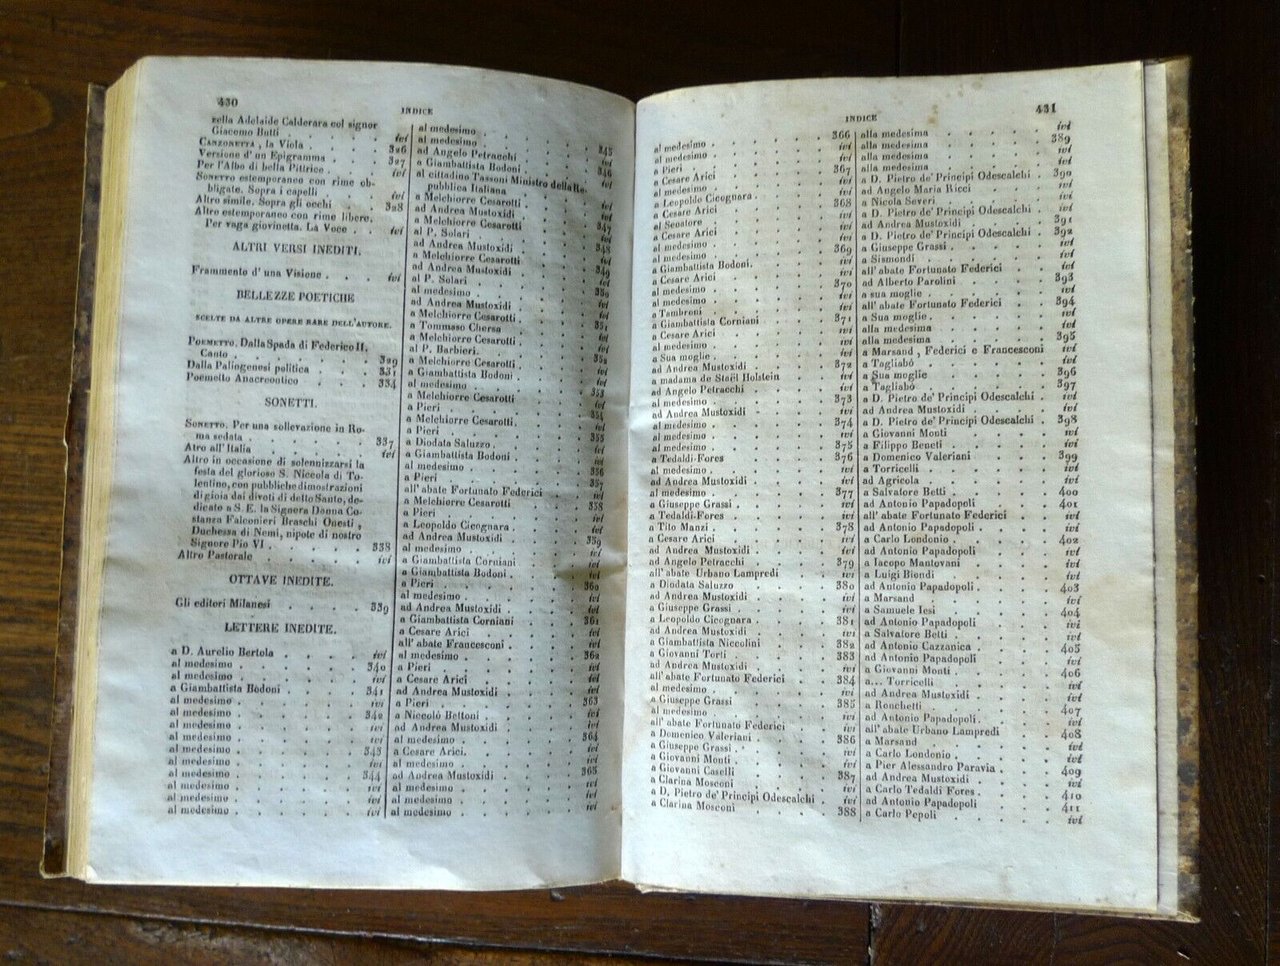 430
INDICE
zella Adelaide Calderara col signor
Giacomo Butti . . . ivi
CANZONETTA, la Viola . . . 326
Versione d'un Epigramma . . . 327
Per l'Albo di bella Pittrice . ivi
SONETTO estemporaneo con rime ob-
bligate. Sopra i capelli . . ivi
Altro simile. Sopra gli occhi . 328
Altro estemporaneo con rime libere.
Per vaga giovinetta. La Voce . ivi
ALTRI VERSI INEDITI.
Frammento d'una Visione . . . ivi
BELLEZZE POETICHE
SCELTE DA ALTRE OPERE RARE DELL'AUTORE.
POEMETTO. Dalla Spada di Federico II.
Canto . . . 329
Dalla Palingenesi politica . . . 331
Poemetto Anacreontico . . . 334
SONETTI.
SONETTO. Per una sollevazione in Ro-
ma sedata . . . 337
Atro all'Italia . . . ivi
Altro in occasione di solennizzarsi la
festa del glorioso S. Niccola di To-
lentino, con pubbliche dimostrazioni
di gioia dai divoti di detto Santo, de-
dicato a S. E. la Signora Donna Co-
stanza Falconieri Braschi Onesti,
Duchessa di Nemi, nipote di nostro
Signore Pio VI . . . 338
Altro Pastorale . . . ivi
OTTAVE INEDITE.
Gli editori Milanesi . . . 339
LETTERE INEDITE.
a D. Aurelio Bertola . . . ivi
al medesimo . . . 340
a Giambattista Bodoni . . . 341
al medesimo . . . ivi
al medesimo . . . 342
al medesimo . . . ivi
al medesimo . . . ivi
al medesimo . . . 343
al medesimo . . . ivi
al medesimo . . . 344
al medesimo . . . ivi
al medesimo . . . ivi
al medesimo . . . ivi
al medesimo
al medesimo . . . 345
ad Angelo Petracchi . . . ivi
a Giambattista Bodoni . . . 346
al cittadino Tassoni Ministro della Re-
pubblica Italiana . . . ivi
a Melchiorre Cesarotti . . . ivi
ad Andrea Mustoxidi . . . ivi
a Melchiorre Cesarotti . . . 347
al P. Solari . . . ivi
ad Andrea Mustoxidi . . . 348
a Melchiorre Cesarotti . . . ivi
ad Andrea Mustoxidi . . . 349
al P. Solari . . . ivi
al medesimo . . . 350
ad Andrea Mustoxidi . . . ivi
a Melchiorre Cesarotti . . . ivi
a Tommaso Chersa . . . 351
a Melchiorre Cesarotti . . . ivi
al P. Barbieri. . . . ivi
a Melchiorre Cesarotti . . . 352
a Giambattista Bodoni . . . ivi
al medesimo . . . ivi
a Melchiorre Cesarotti . . . 353
a Pieri . . . ivi
a Melchiorre Cesarotti . . . 354
a Pieri . . . ivi
a Diodata Saluzzo . . . 355
a Giambattista Bodoni . . . ivi
al medesimo . . . ivi
a Pieri . . . 356
all'abate Fortunato Federici . . . 357
a Melchiorre Cesarotti . . . ivi
a Pieri . . . 358
a Leopoldo Cicognara . . . ivi
ad Andrea Mustoxidi . . . ivi
al medesimo . . . 359
a Giambattista Corniani . . . ivi
a Giambattista Bodoni . . . ivi
a Pieri . . . ivi
al medesimo . . . 360
ad Andrea Mustoxidi . . . ivi
a Giambattista Corniani . . . ivi
a Cesare Arici . . . 361
all'abate Francesconi . . . ivi
al medesimo . . . ivi
a Pieri . . . 362
a Cesare Arici . . . ivi
ad Andrea Mustoxidi . . . ivi
a Pieri . . . 363
a Niccolò Bettoni . . . ivi
ad Andrea Mustoxidi . . . ivi
al medesimo . . . 364
a Cesare Arici. . . . ivi
al medesimo . . . ivi
ad Andrea Mustoxidi . . . 365
al medesimo . . . ivi
al medesimo . . . ivi
al medesimo . . . ivi
INDICE
431
al medesimo . . . 366
al medesimo . . . ivi
a Pieri . . . ivi
a Cesare Arici . . . 367
al medesimo . . . ivi
a Leopoldo Cicognara . . . ivi
a Cesare Arici . . . 368
al Senatore . . . ivi
a Cesare Arici . . . ivi
al medesimo . . . ivi
al medesimo . . . 369
a Giambattista Bodoni. . . . ivi
a Cesare Arici . . . ivi
al medesimo . . . 370
al medesimo . . . ivi
a Tambroni . . . ivi
a Giambattista Corniani . . . 371
a Cesare Arici . . . ivi
al medesimo . . . ivi
a Sua moglie . . . ivi
ad Andrea Mustoxidi . . . 372
a madama de Staël Holstein . . . ivi
ad Angelo Petracchi . . . ivi
al medesimo . . . 373
ad Andrea Mustoxidi . . . ivi
al medesimo . . . 374
al medesimo . . . ivi
al medesimo . . . 375
a Tedaldi-Fores . . . 376
al medesimo . . . ivi
ad Andrea Mustoxidi . . . ivi
al medesimo . . . 377
a Giuseppe Grassi . . . ivi
a Tedaldi-Fores . . . ivi
a Tito Manzi . . . 378
a Cesare Arici . . . ivi
ad Andrea Mustoxidi . . . ivi
ad Angelo Petracchi . . . 379
all'abate Urbano Lampredi . . . ivi
a Diodata Saluzzo . . . 380
ad Andrea Mustoxidi . . . ivi
a Giuseppe Grassi . . . ivi
a Leopoldo Cicognara . . . 381
ad Andrea Mustoxidi . . . ivi
a Giambattista Niccolini . . . 382
a Giovanni Torti . . . 383
ad Andrea Mustoxidi . . . ivi
all'abate Fortunato Federici . . . 384
al medesimo . . . ivi
a Giuseppe Grassi . . . 385
al medesimo . . . ivi
all'abate Fortunato Federici . . . ivi
a Domenico Valeriani . . . 386
a Giuseppe Grassi . . . ivi
a Giovanni Monti . . . ivi
a Giovanni Caselli . . . ivi
a Clarina Mosconi . . . 387
a D. Pietro de' Principi Odescalchi . ivi
a Clarina Mosconi . . . 388
alla medesima . . . ivi
alla medesima . . . 389
alla medesima . . . ivi
alla medesima . . . ivi
a D. Pietro de' Principi Odescalchi . 390
ad Angelo Maria Ricci . . . ivi
a Nicola Severi . . . ivi
a D. Pietro de' Principi Odescalchi . ivi
ad Andrea Mustoxidi . . . 391
a D. Pietro de' Principi Odescalchi . 392
a Giuseppe Grassi . . . ivi
a Sismondi . . . ivi
all'abate Fortunato Federici . . . ivi
ad Alberto Parolini . . . 393
a sua moglie . . . ivi
all'abate Fortunato Federici . . . 394
a Sua moglie . . . ivi
alla medesima . . . ivi
a Marsand, Federici e Francesconi 395
a Tagliabò . . . ivi
a Sua moglie . . . ivi
a Tagliabò . . . 396
a D. Pietro de' Principi Odescalchi . 397
ad Andrea Mustoxidi . . . ivi
a D. Pietro de' Principi Odescalchi . ivi
a Giovanni Monti . . . 398
a Filippo Beneti . . . ivi
a Domenico Valeriani . . . ivi
a Torricelli . . . 399
ad Agricola . . . ivi
a Salvatore Betti . . . ivi
ad Antonio Papadopoli . . . 400
all'abate Fortunato Federici . . . 401
ad Antonio Papadopoli . . . ivi
a Carlo Londonio . . . ivi
ad Antonio Papadopoli . . . 402
a Iacopo Mantovani . . . ivi
a Luigi Biondi . . . ivi
ad Antonio Papadopoli . . . ivi
a Marsand . . . 403
a Samuele Iesi . . . ivi
ad Antonio Papadopoli . . . 404
a Salvatore Betti . . . ivi
ad Antonio Cazzanica . . . ivi
ad Antonio Papadopoli . . . 405
a Giovanni Monti . . . ivi
a... Torricelli . . . 406
ad Andrea Mustoxidi . . . ivi
a Ronchetti . . . ivi
ad Antonio Papadopoli . . . 407
all'abate Urbano Lampredi . . . ivi
a Marsand . . . 408
a Carlo Londonio . . . ivi
a Pier Alessandro Paravia . . . ivi
ad Andrea Mustoxidi . . . 409
a Carlo Tedaldi Fores . . . ivi
ad Antonio Papadopoli . . . 410
a Carlo Pepoli . . . 411
ivi